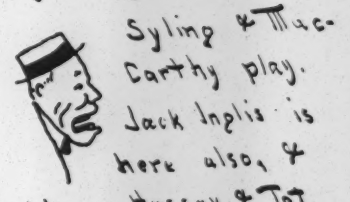 Syling & Mac-
Carthy play.
Jack Inglis is
here also, &
& Tot